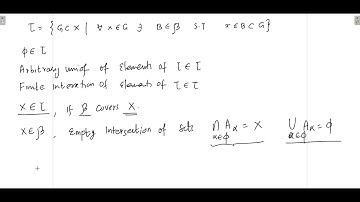 τ = { G ⊂ X | ∀ x ∈ G ∃ B ∈ β S.T x ∈ B ⊂ G }
ϕ ∈ τ
Arbitrary union of Elements of τ ∈ τ
Finite Intersection of Elements of τ ∈ τ
X ∈ τ, if β Covers X.
X ∈ β, Empty Intersection of Sets ∩ Aα = X ∪ Aα = ϕ
α∈ϕ α∈ϕ